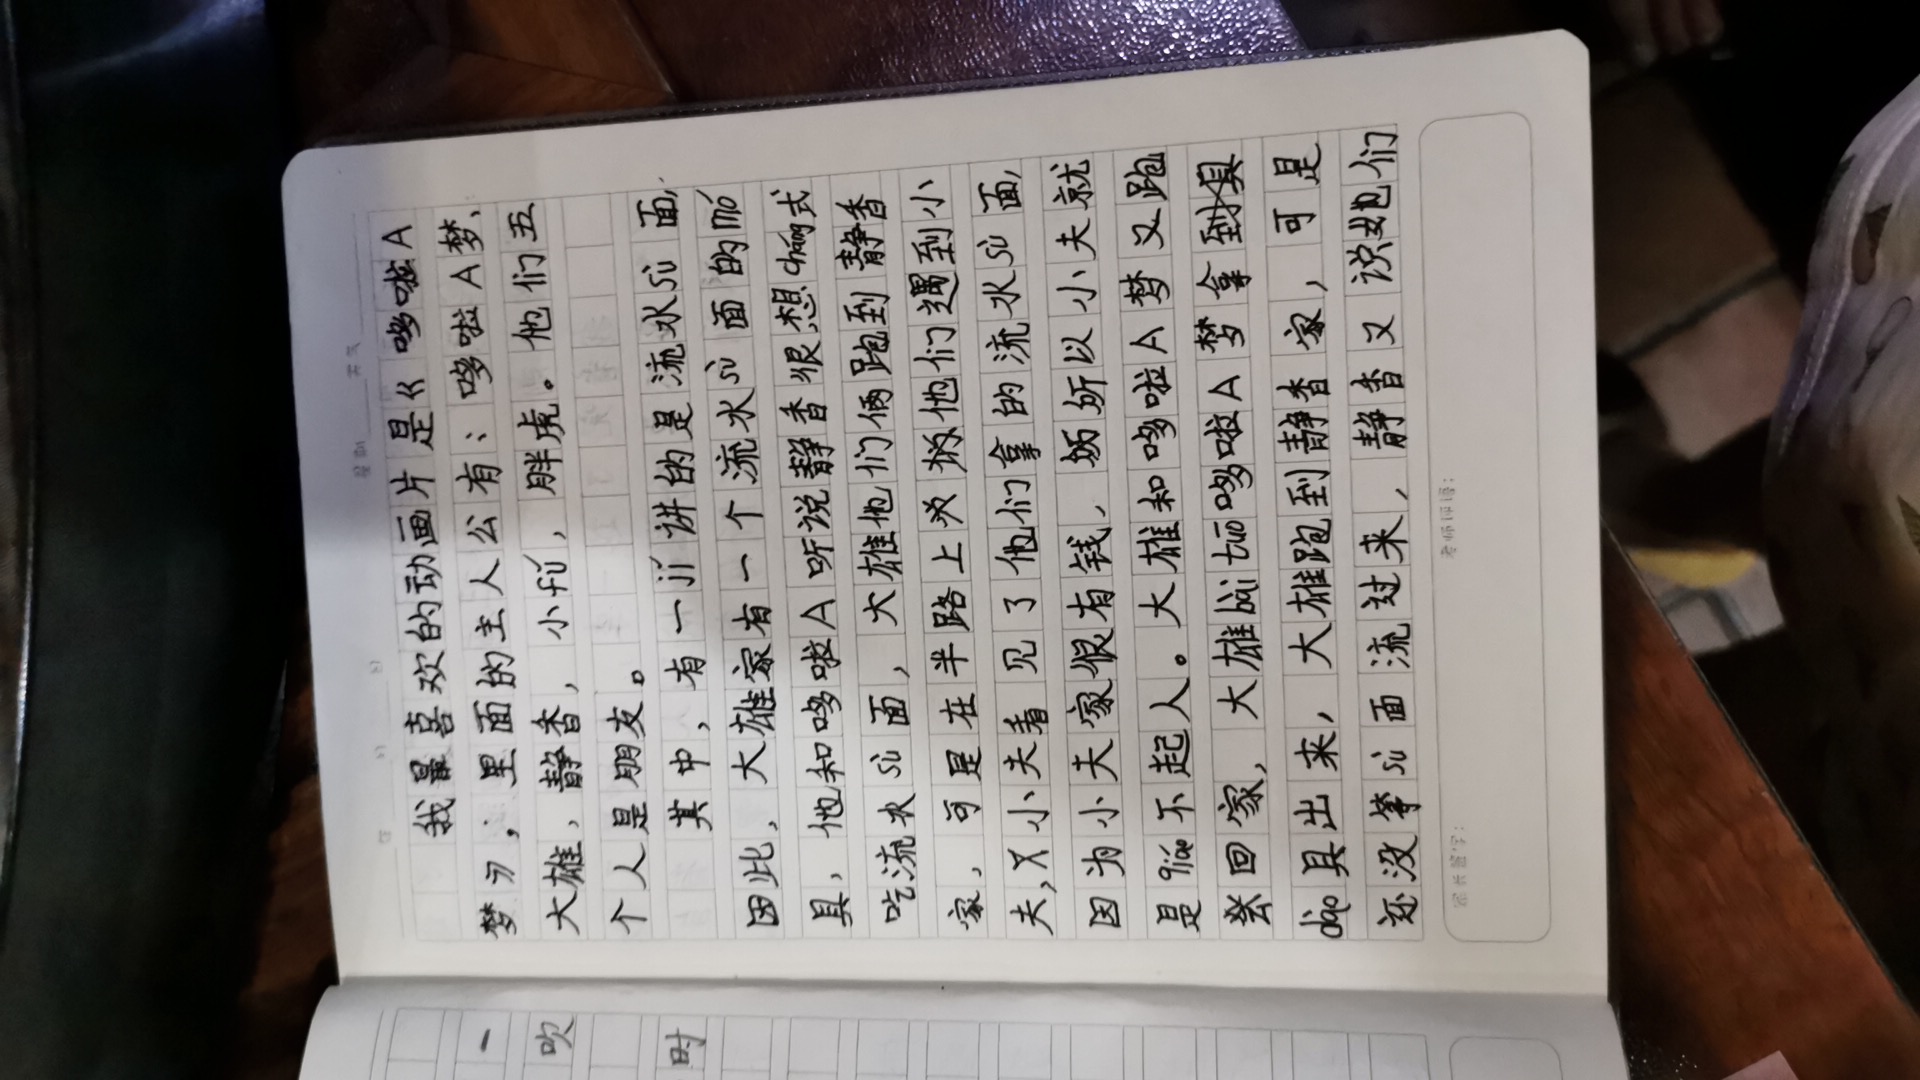 月 日 星期 天气
我最喜欢的动画片是《哆啦A
梦》，里面的主人公有：哆啦A梦、
大雄、静香，小fú，胖虎。他们五
个人是朋友。
其中，有一jí讲的是流水sù面，
因此，大雄家有一个流水sù面的mó
具，他和哆啦A听说静香很想cháng式
吃流水sù面，大雄他们俩跑到静香
家，可是在半路上他们遇到小
夫，小夫看见了他们拿的流水sù面，
因为小夫家很有钱，所以小夫就
是qiáo不起人。大雄和哆啦A梦又跑
回家，大雄bài tuō哆啦A梦拿到具
dào具出来，大雄跑到静香家，可是
还没等sù面流过来，静香又说她们
家长签字：
老师评语：
一
吹
时